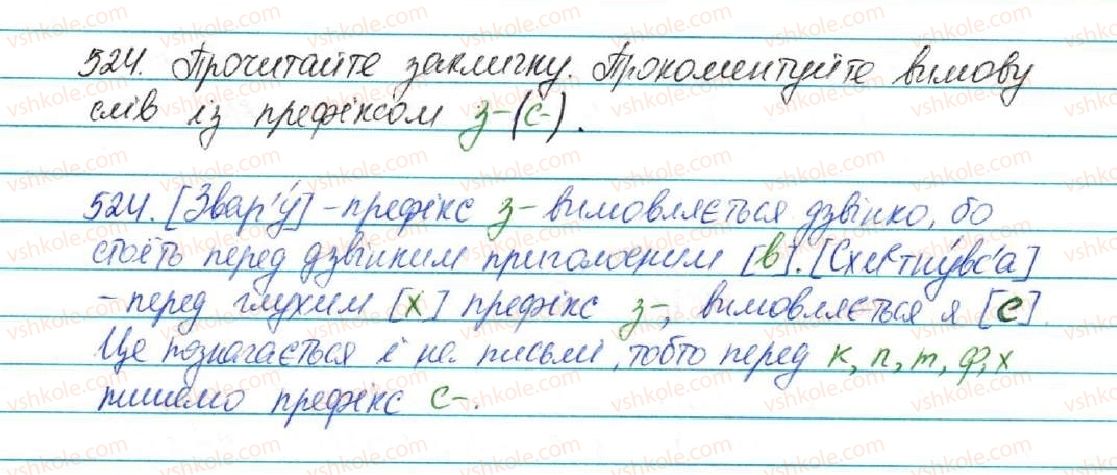 524. Прочитайте закличку. Прокоментуйте вимову
слів із префіксом з-(с-).
524. [Звар'у́] - префікс з- вимовляється дзвінко, бо
стоїть перед дзвінким приголосним [в].[Схиᵉтну́вс'а]
- перед глухим [х] префікс з-, вимовляється я [с].
Це позначається і на письмі, тобто перед к, п, т, ф, х
пишемо префікс с-.